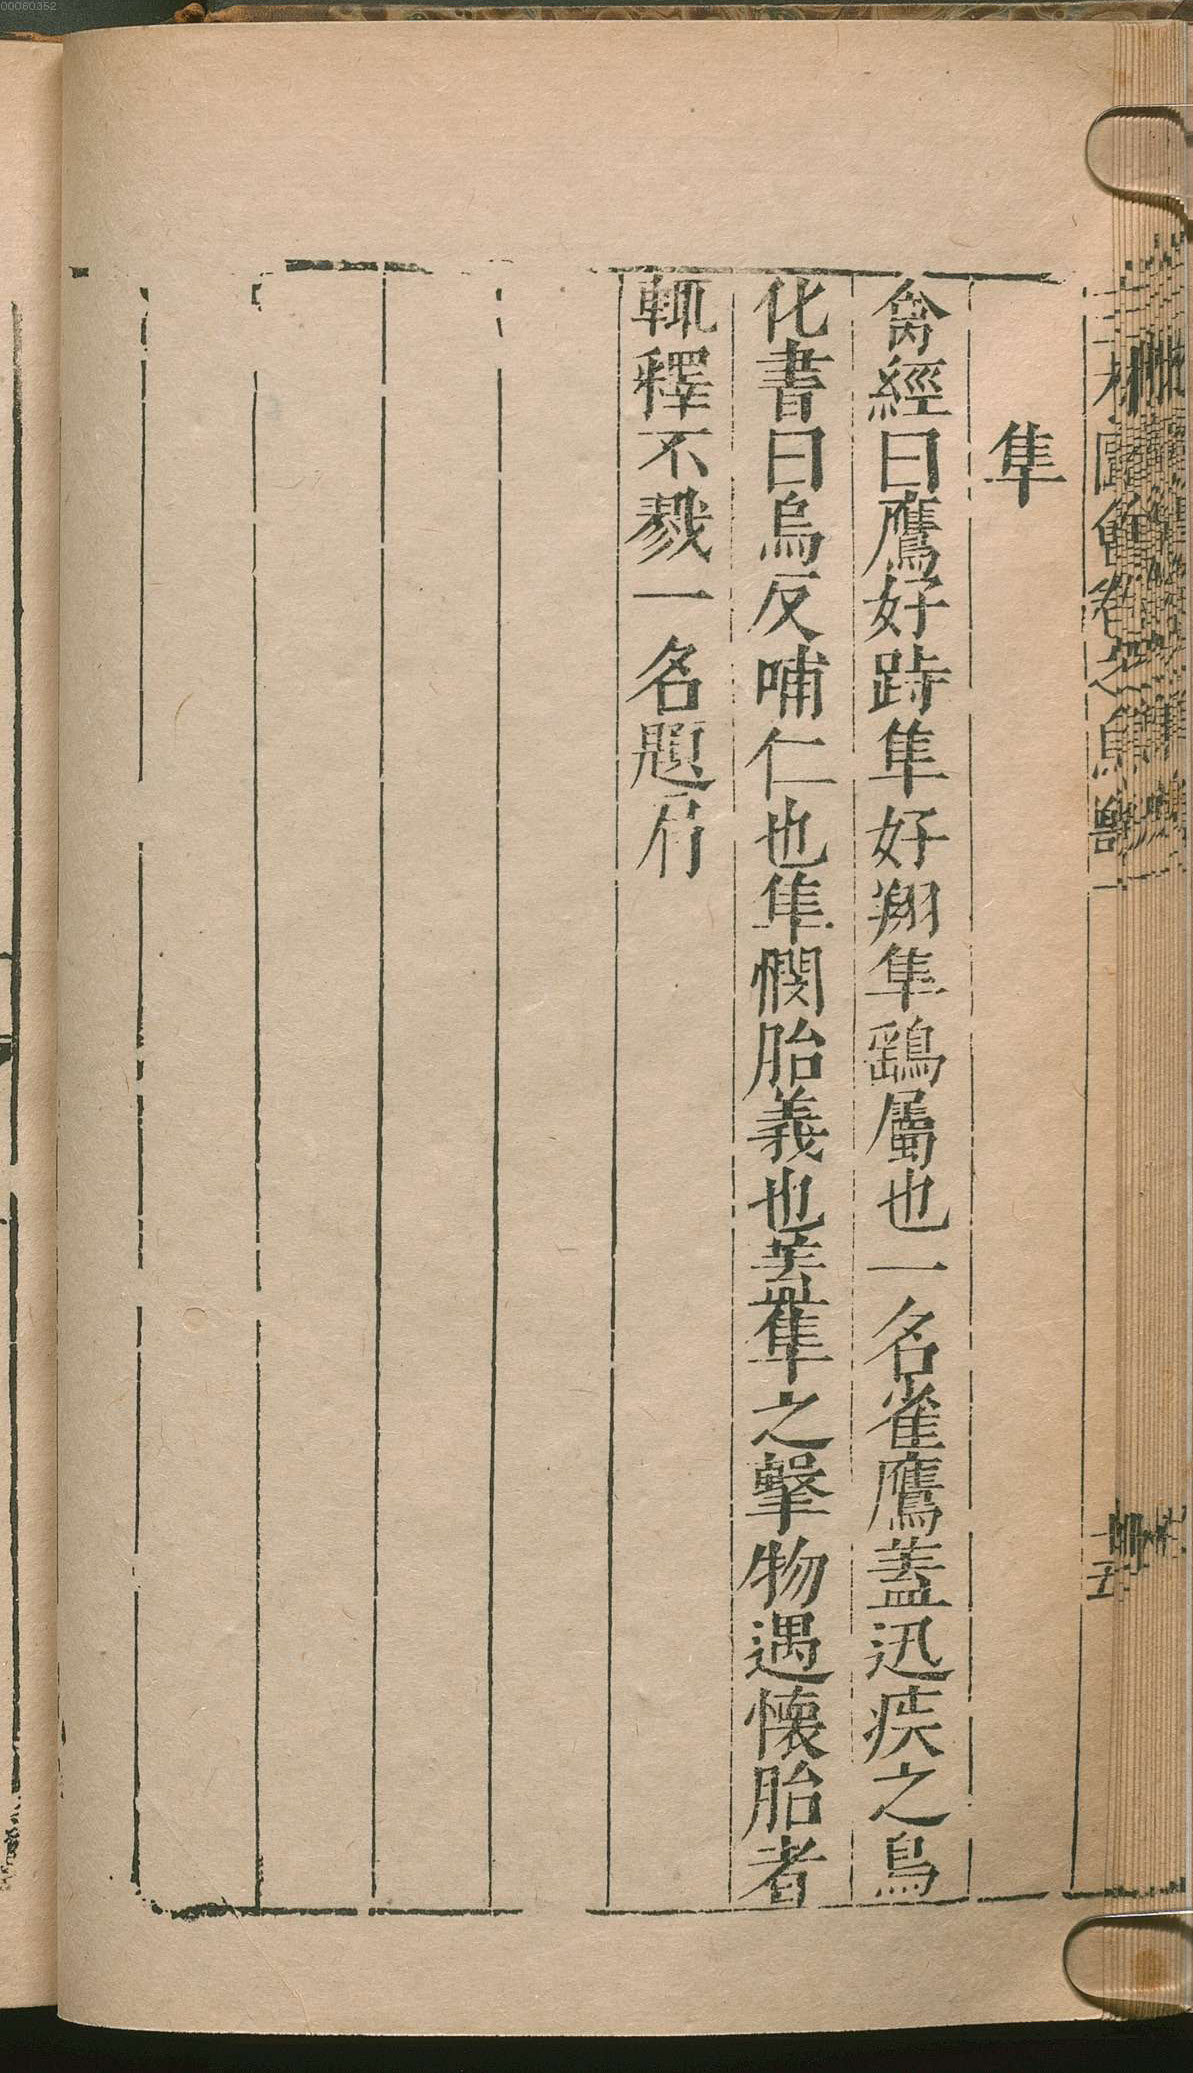 隼
禽經曰鷹好跱隼好翔隼鷂屬也一名雀鷹蓋迅疾之鳥
化書曰烏反哺仁也隼憫胎義也蓋隼之擊物遇懷胎者
輒釋不戮一名題肩
00060352